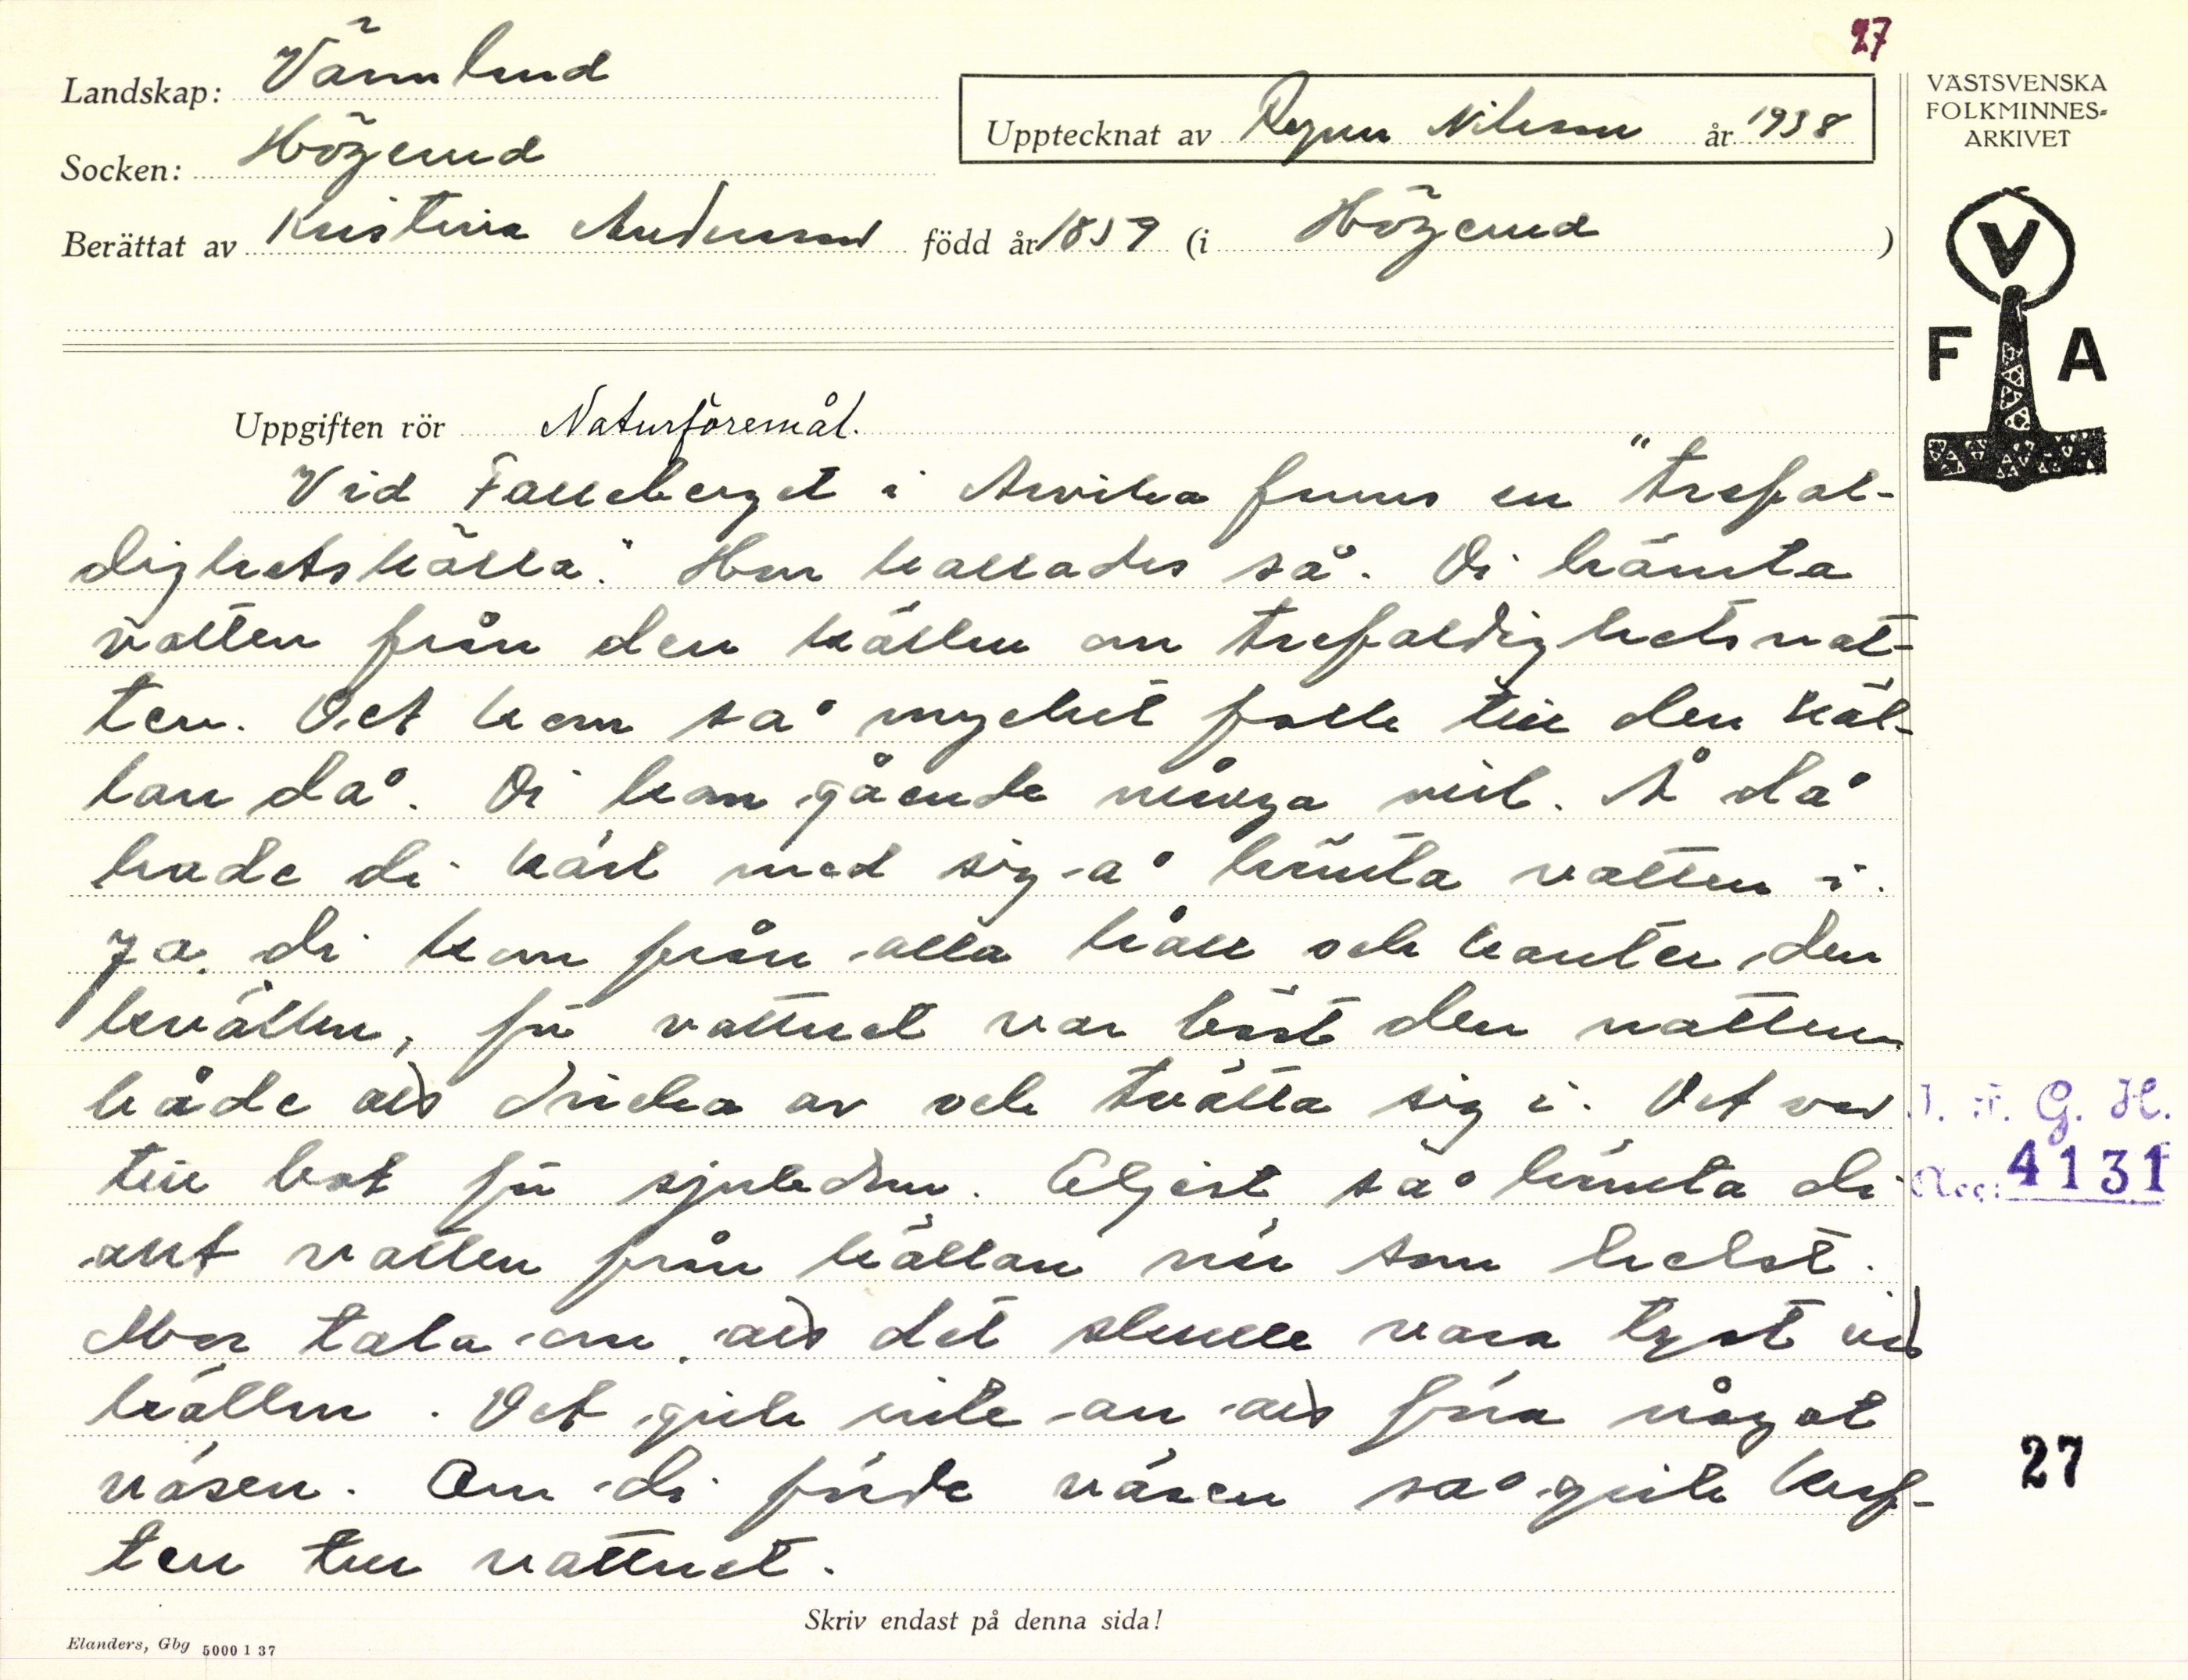 27
Landskap: Värmland
Socken: Högerud
Upptecknat av Ragnar Nilsson år 1938
Berättat av Kristina Andersson född år 1859 (i Högerud)
VÄSTSVENSKA
FOLKMINNES-
ARKIVET
V
F A
Uppgiften rör Naturföremål.
Vid Palleberget i Arvika finns en "trefal-
dighetskälla". Hon kallades så. Di hämta
vatten från den källan om trefaldighetsnat-
ten. Det kom så mycket folk till den käl-
lan då. Di kom gående många mil. Å då
hade di kärl med sig å hämta vatten i.
Ja di kom från alla håll och kanter den
kvällen, för vattnet var bäst den natten
både att dricka av och tvätta sig i. Det var
till bot för sjukdom. Eljest så hämta di
allt vatten från källan när som helst.
Mor tala om att det skulle vara tyst vid
källan. Det gick inte an att föra något
väsen. Om di förde väsen så gick kraf-
ten ur vattnet.
I. F. G. H.
Acc: 4131
27
Skriv endast på denna sida!
Elanders, Gbg 5000 1 37